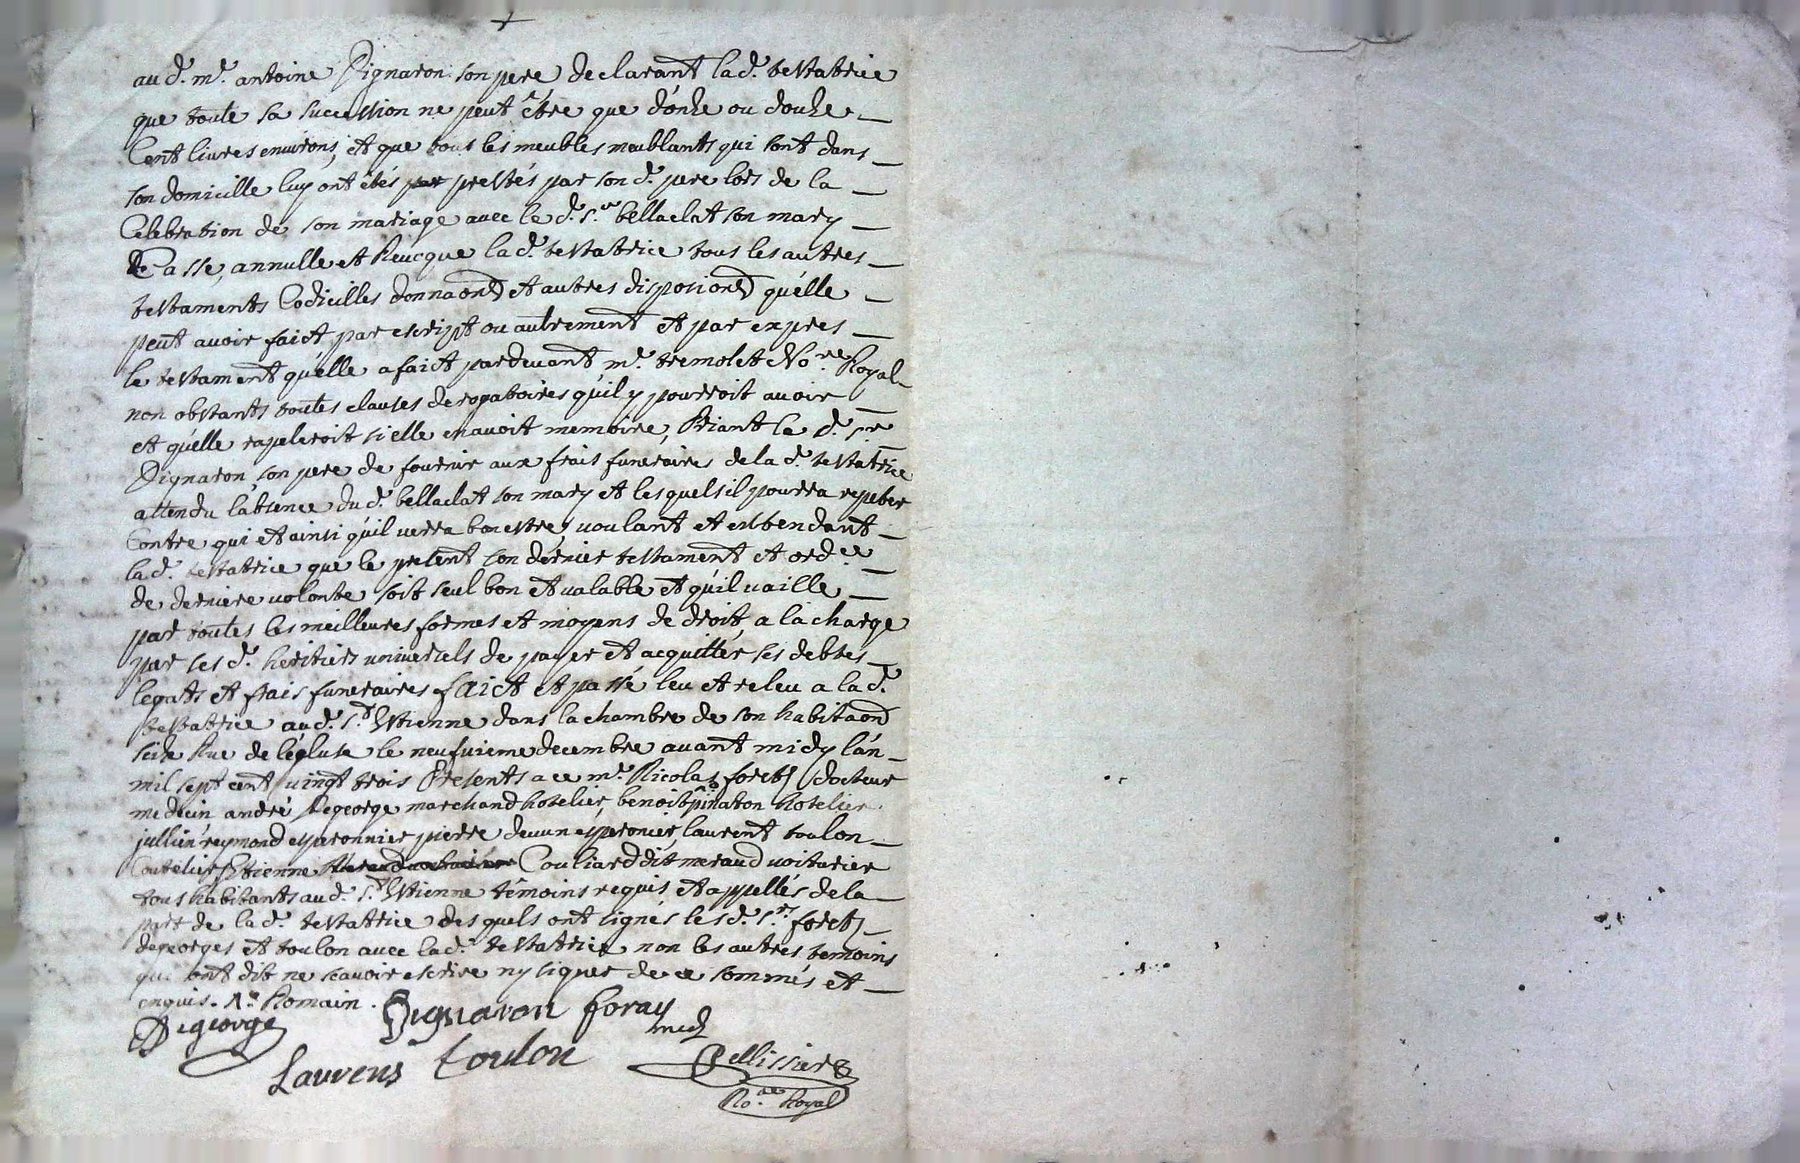 au d. mr. antoine Pignaron son pere declarant lad. testatrice
que toute sa succession ne peut être que d'onze ou douze
Cent livres environs, et que tous les meubles meublants qui sont dans
son domicille luy ont étés prestés par son d. pere lors de la
Celebration de son mariage avec le d. sr. bellaclat son mary
Casse, annulle et Reucque lad. testatrice tous les autres
testaments Codicilles donnaons et autres disposions qu'elle
peut avoir faict par escript ou autrement et par expres
le testament qu'elle a faict pardevant mr. tremolet No.re Royal
non obstants toutes clauses derogatoires qu'il y pourroit avoir
et qu'elle rapeleroit si elle en avoit memoire, Priant le d. sr.
Pignaron son pere de fournir aux frais funeraires de la d. testatrice
attendu l'absence du d. bellaclat son mary et lesquels il pourra repeter
Contre qui et ainsi qu'il verra bon estre, voulant et entendant
la d. testatrice que le present son dernier testament et ord.ce
de derniere volonte soit seul bon et valable et qu'il vaille
par toutes les meilleures formes et moyens de droit a la charge
par ses d. heritiers universels de payer et acquitter ses debtes
legats et frais funeraires faict et passé leu et releu a la d.
testatrice au d. st. Estienne dans la chambre de son habitaon
size Rue de l'écluse le neufvieme decembre avant midy l'an
mil sept cent vingt trois Presents a ce mr. Nicolas forets docteur
medecin andré Degeorge marchand hotelier, benoit pinaton hotelier
jullien reymond esperonnier pierre devun esperonier laurent toulon
Coutelier Etienne Couliard dit meraud voiturier
tous habitants au d. st. Estienne témoins requis et appellés de la
part de la d. testatrice desquels ont signés les d. srs. forets
degeorges et toulon avec la d. testatrice non les autres temoins
qui ont dit ne scavoir escrire ny signer de ce sommés et
enquis. Romain.
Degeorge Pignaron foray
med
Laurens toulon Pellissier
No.re Royal